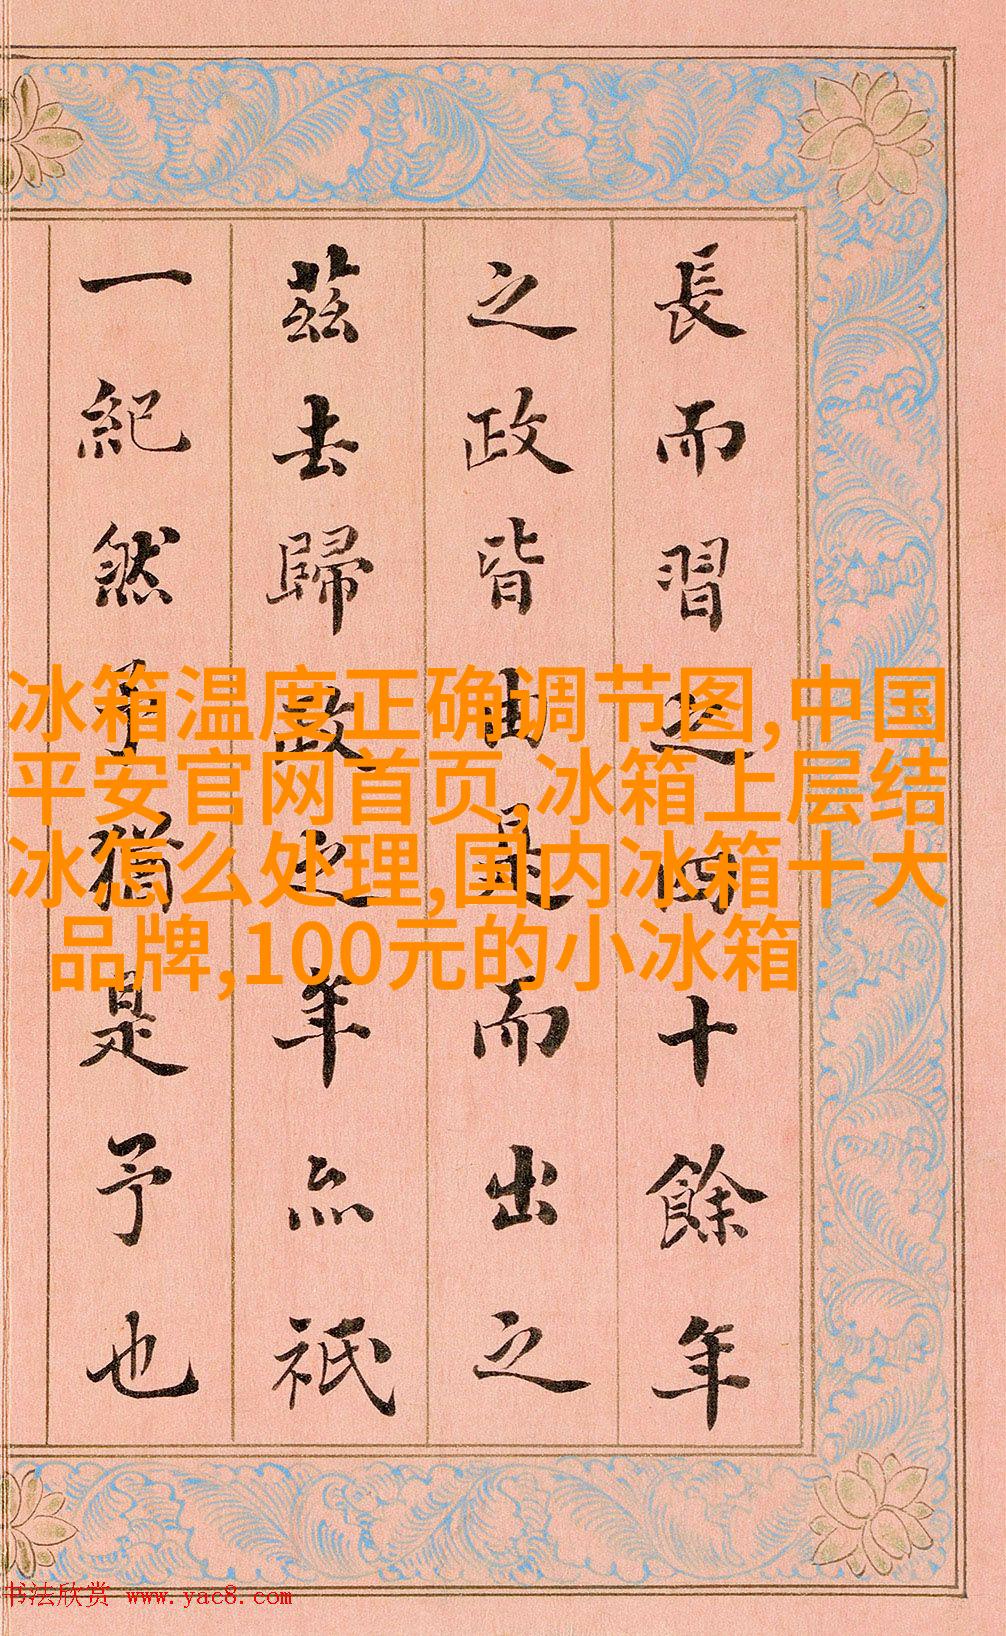 長而習之四十餘年
之政皆由是而出之
茲去歸政之年亦祇
一紀然予猶是予也
冰箱温度正确调节图,中国
平安官网首页,冰箱上层结
冰怎么处理,国内冰箱十大
品牌,100元的小冰箱
书法欣赏 www.yac8.com